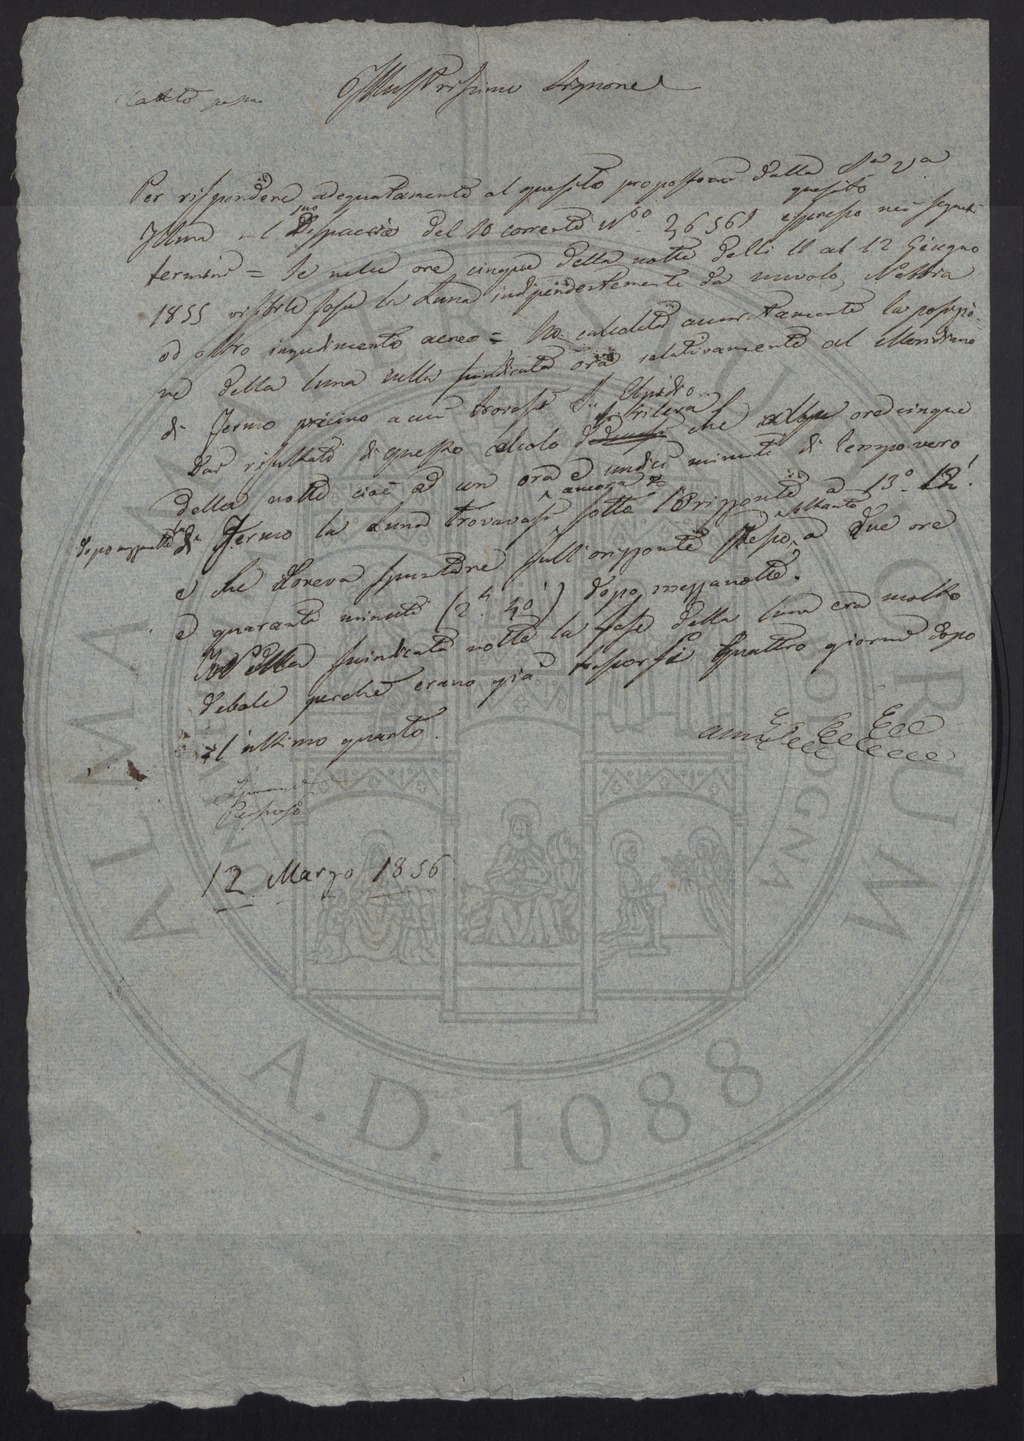 Illustrissimo Signore
Per rispondere adeguatamente al quesito propostomi dalla S.a V.a
Illma nel suo Dispaccio del 10 corrente N.o 36561 quesito espresso nei seguenti
termini = Se nelle ore cinque della notte delli 11 al 12 Giugno
1855 visibile fosse la Luna indipendentemente da nuvole, Nebbia
od altro impedimento aereo = Ho calcolato accuratamente la posizio
ne della luna nella suindicata ora relativamente al Meridiano
di Fermo vicino a cui trovasi S. Elpidio
Dai risultati di questo calcolo si rileva che alle ore cinque
della notte cioè ad un ora e undici minuti di tempo vero
dopo mezzanotte di Fermo la Luna trovavasi ancora sotto l'Orizzonte a 13° 12'
e che doveva spuntare sull'orizzonte stesso, soltanto a due ore
e quaranta minuti (2.h 40') dopo mezzanotte.
Nella suindicata notte la fase della luna era molto
debole perchè erano già trascorsi quattro giorni dopo
l'ultimo quarto.
Ecc Ecc
12 Marzo 1856.
ALMA MATER STUDIORUM
BOLOGNA
A.D. 1088